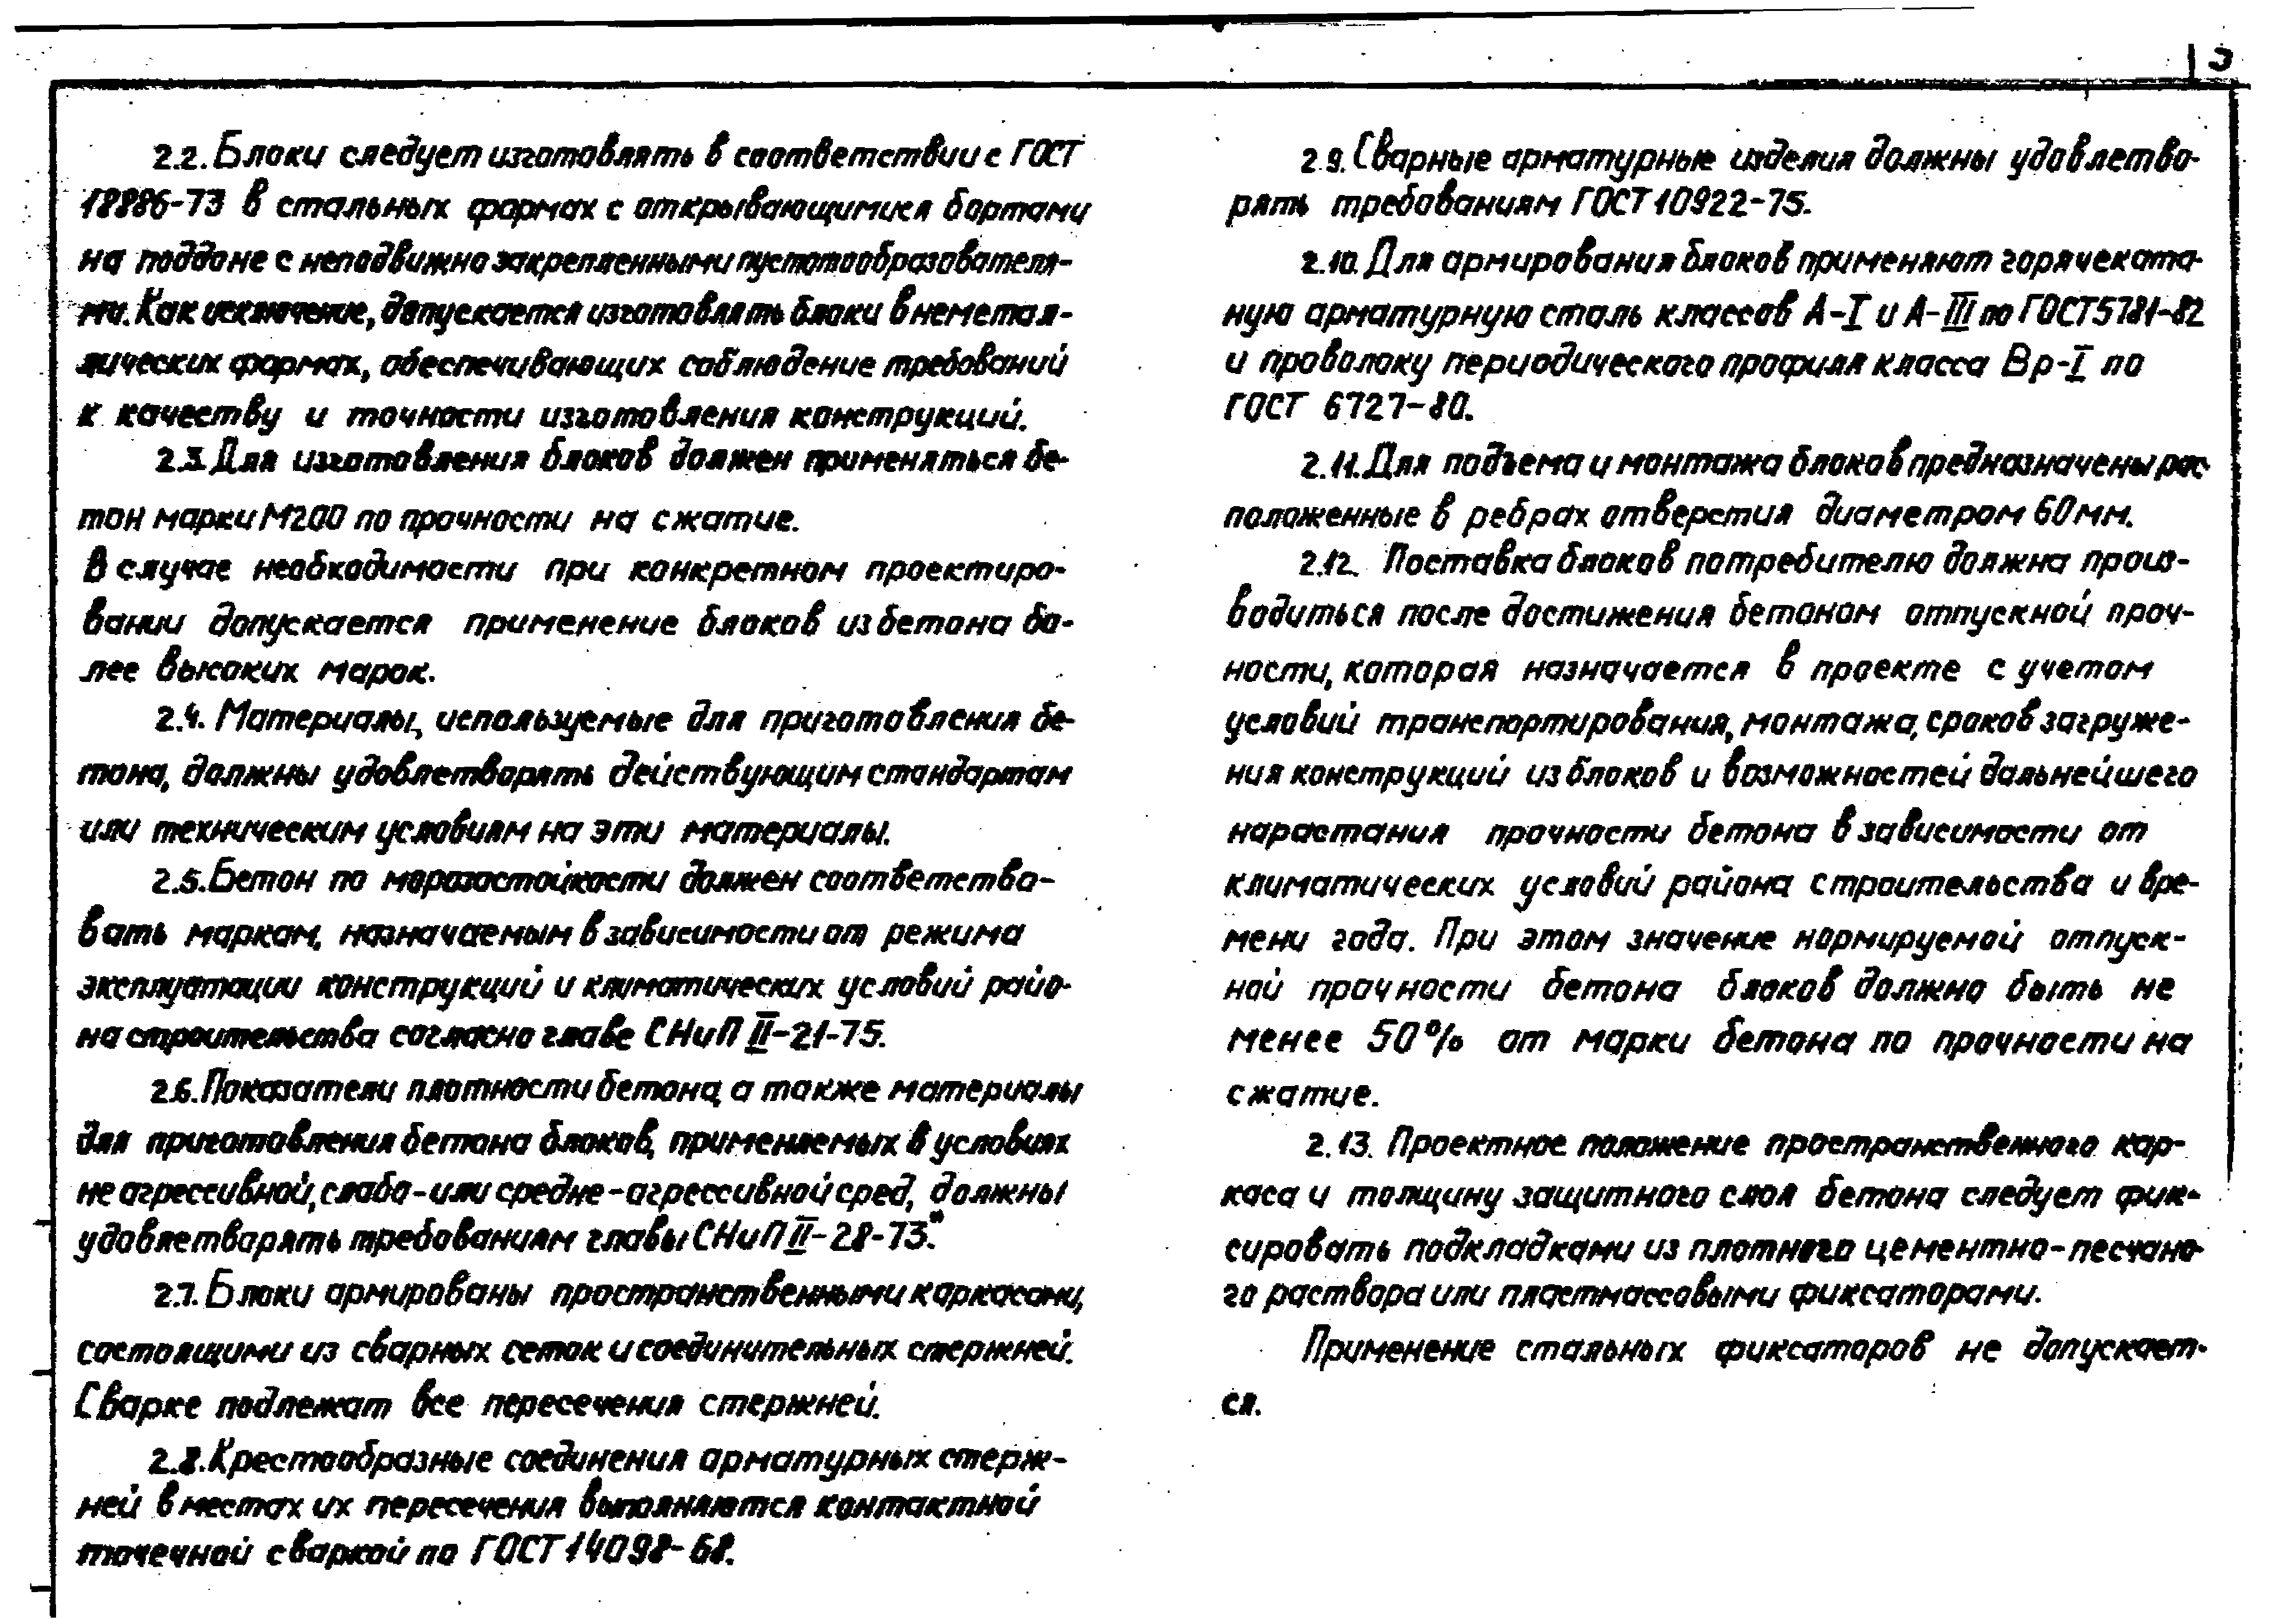 3
2.2. Блоки следует изготовлять в соответствии с ГОСТ
18886-73 в стальных формах с открывающимися бортами
на поддоне с неподвижно закрепленными пустотообразователя-
ми. Как исключение, допускается изготовлять блоки в неметал-
лических формах, обеспечивающих соблюдение требований
к качеству и точности изготовления конструкций.
2.3. Для изготовления блоков должен применяться бе-
тон марки М200 по прочности на сжатие.
В случае необходимости при конкретном проектиро-
вании допускается применение блоков из бетона бо-
лее высоких марок.
2.4. Материалы, используемые для приготовления бе-
тона, должны удовлетворять действующим стандартам
или техническим условиям на эти материалы.
2.5. Бетон по морозостойкости должен соответство-
вать маркам, назначаемым в зависимости от режима
эксплуатации конструкций и климатических условий райо-
на строительства согласно главе СНиП II-21-75.
2.6. Показатели плотности бетона, а также материалы
для приготовления бетона блоков, применяемых в условиях
не агрессивной, слабо-или средне-агрессивной сред, должны
удовлетворять требованиям главы СНиП II-28-73.*
2.7. Блоки армированы пространственными каркасами,
состоящими из сварных сеток и соединительных стержней.
Сварке подлежат все пересечения стержней.
2.8. Крестообразные соединения арматурных стерж-
ней в местах их пересечения выполняются контактной
точечной сваркой по ГОСТ 14098-68.
2.9. Сварные арматурные изделия должны удовлетво-
рять требованиям ГОСТ 10922-75.
2.10. Для армирования блоков применяют горячеката-
ную арматурную сталь классов А-I и А-III по ГОСТ 5781-82
и проволоку периодического профиля класса Вр-I по
ГОСТ 6727-80.
2.11. Для подъема и монтажа блоков предназначены рас-
положенные в ребрах отверстия диаметром 60мм.
2.12. Поставка блоков потребителю должна произ-
водиться после достижения бетоном отпускной проч-
ности, которая назначается в проекте с учетом
условий транспортирования, монтажа, сроков загруже-
ния конструкций из блоков и возможностей дальнейшего
нарастания прочности бетона в зависимости от
климатических условий района строительства и вре-
мени года. При этом значение нормируемой отпуск-
ной прочности бетона блоков должно быть не
менее 50% от марки бетона по прочности на
сжатие.
2.13. Проектное положение пространственного кар-
каса и толщину защитного слоя бетона следует фик-
сировать подкладками из плотного цементно-песчано-
го раствора или пластмассовыми фиксаторами.
Применение стальных фиксаторов не допускает-
ся.